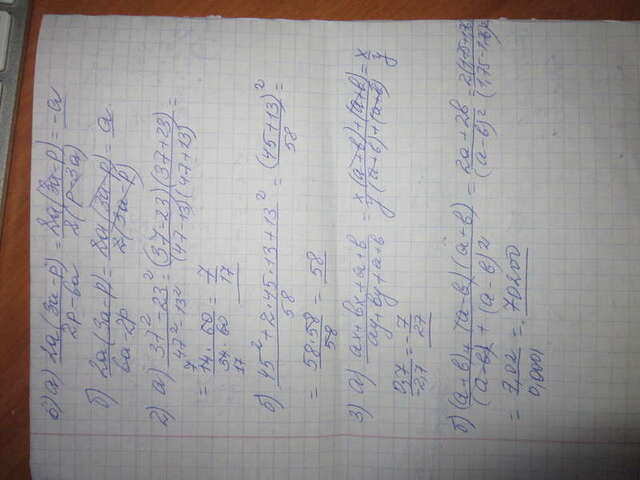 б) а) 2a(3a-p)/2p-6a = 2a(3a-p)/2(p-3a) = -a
б) 2a(3a-p)/6a-2p = 2a(3a-p)/2(3a-p) = a
2) а) 37²-23²/47²-13² = (37-23)(37+23)/(47-13)(47+13) =
= 14·60/34·60 = 7/17
б) 45²+2·45·13+13²/58 = (45+13)²/58 =
= 58·58/58 = 58
3) а) ax+bx+a+b/ay+by+a+b = x(a+b)+(a+b)/y(a+b)+(a+b) = x/y
= -7/27
б) (a+b)/(a-b) + (a-b)(a+b)/(a-b)² = 2a+2b/(a-b)² =
= 7,02/0,0001 = 70200